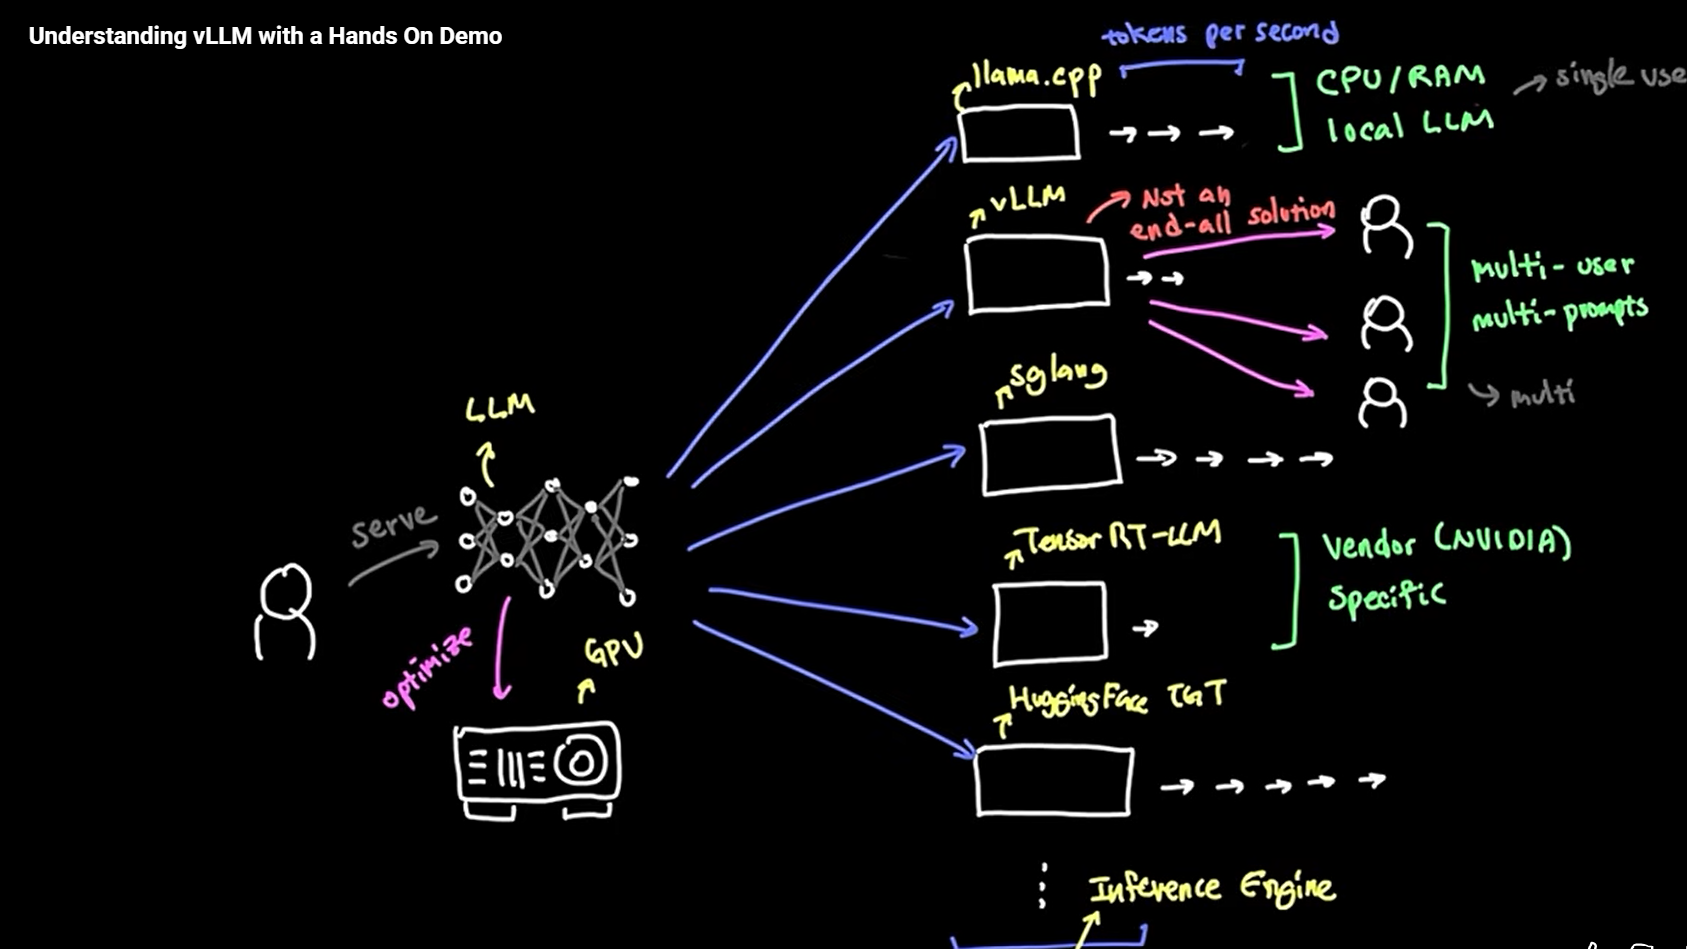 Understanding vLLM with a Hands On Demo
tokens per second
llama.cpp
CPU/RAM
local LLM
single use
vLLM
Not an
end-all solution
multi-user
multi-prompts
multi
sglang
LLM
serve
optimize
GPU
TensorRT-LLM
Vendor (NVIDIA)
Specific
HuggingFace TGI
Inference Engine